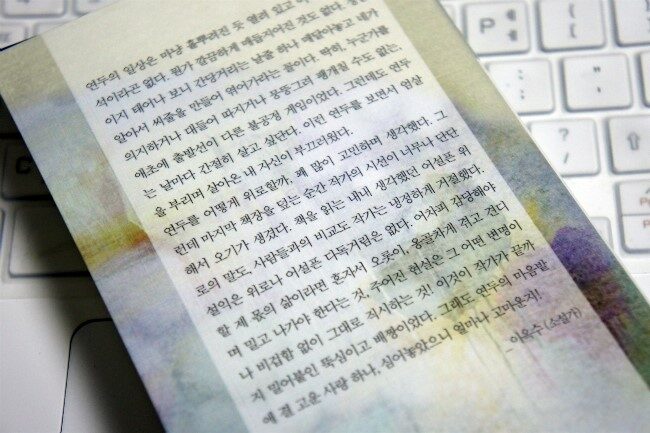 연두의 일상은 마냥 흩뿌려진 듯 열려 있고
석이라곤 없다. 뭔가 깔끔하게 매듭지어진 것도 없다.
이지 태어나 보니 간당거리는 날줄 하나 매달아놓고 네가
알아서 씨줄을 만들어 엮어가라는 꼴이다. 딱히, 누군가를
의지하거나 대들어 따지거나 뭉뚱그려 팽개칠 수도 없는,
애초에 출발선이 다른 불공정 게임이었다. 그런데도 연두
는 날마다 간절히 살고 싶단다. 이런 연두를 보면서 엄살
을 부리며 살아온 내 자신이 부끄러웠다.
연두를 어떻게 위로할까, 꽤 많이 고민하며 생각했다. 그
런데 마지막 책장을 덮는 순간 작가의 시선이 너무나 단단
해서 오기가 생겼다. 책을 읽는 내내 생각했던 어설픈 위
로의 말도 사람들과의 비교도 작가는 냉정하게 거절했다.
설익은 위로나 어설픈 다독거림은 없다. 어차피 감당해야
할 제 몫의 삶이라면 혼자서 오롯이, 옹골차게 겪고 견디
며 밀고 나가야 한다는 것. 주어진 현실은 그 어떤 변명이
나 비겁함 없이 그대로 직시하는 것! 이것이 작가가 끝까
지 밀어붙인 뚝심이고 배짱이었다. 그래도 연두의 마음밭
에 결 고운 사랑 하나, 심어놓았으니 얼마나 고마운지!
_이옥수 (소설가)